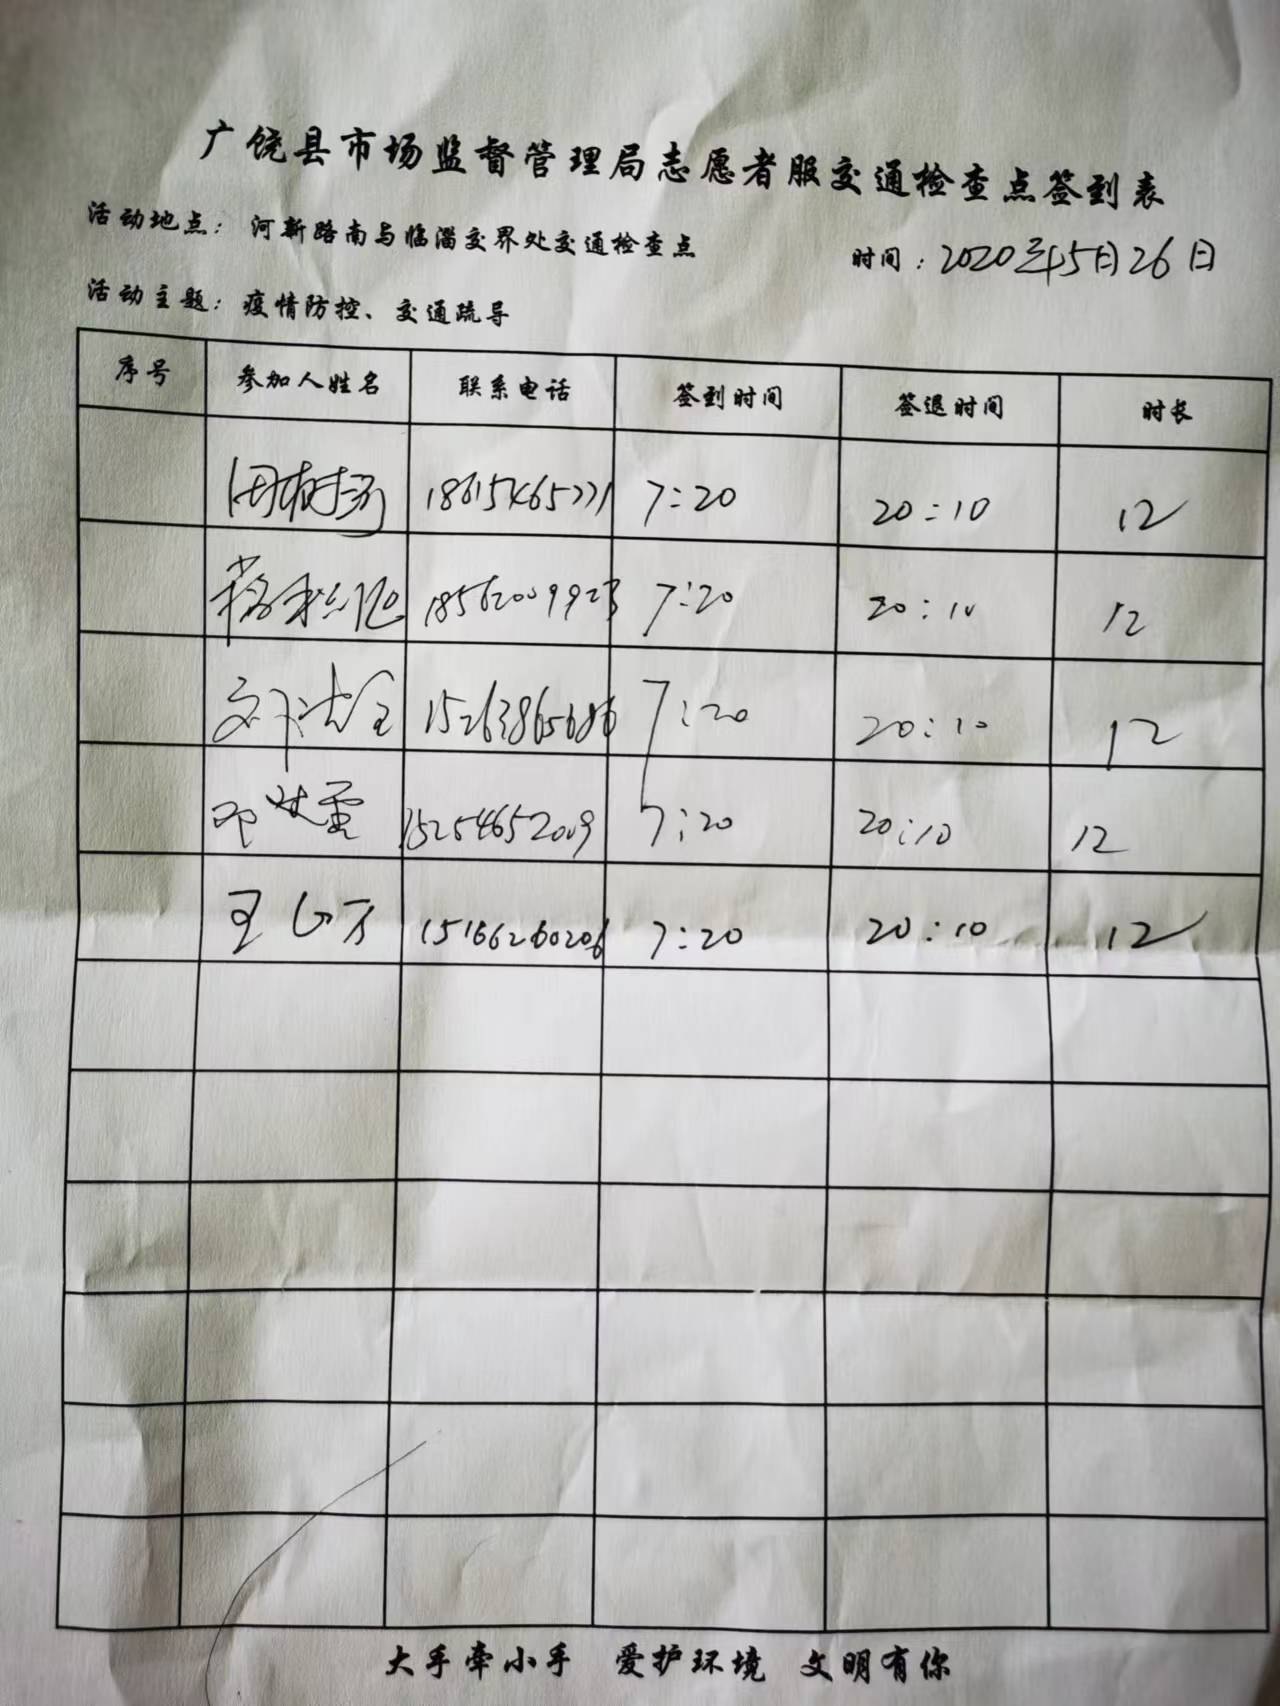 广饶县市场监督管理局志愿者服交通检查点签到表
活动地点：河新路南与临淄交界处交通检查点 时间：2020年5月26日
活动主题：疫情防控、交通疏导
序号 参加人姓名 联系电话 签到时间 签退时间 时长
18615465771 7:20 20:10 12
18562009923 7:20 20:10 12
15263865686 7:20 20:10 12
15254652009 7:20 20:10 12
王 15166260206 7:20 20:10 12
大手牵小手 爱护环境 文明有你